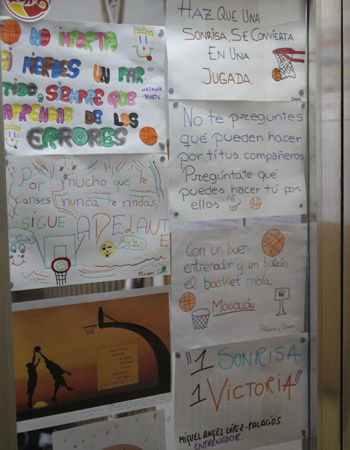 NO IMPORTA
SI PIERDES UN PAR
TIDO, SIEMPRE QUE
APRENDAS DE LOS
ERRORES
HAZ QUE UNA
SONRISA SE CONVIERTA
EN UNA
JUGADA.
No te preguntes
qué pueden hacer
por ti tus compañeros
Pregúntate qué
puedes hacer tú por
ellos.
Por mucho que te
canses nunca te rindas,
SIGUE ADELANTE
Con un buen
entrenador y un balón
el basket mola
"1 SONRISA
1 VICTORIA"
MIGUEL ANGEL LÓPEZ-PALACIOS
ENTRENADOR.